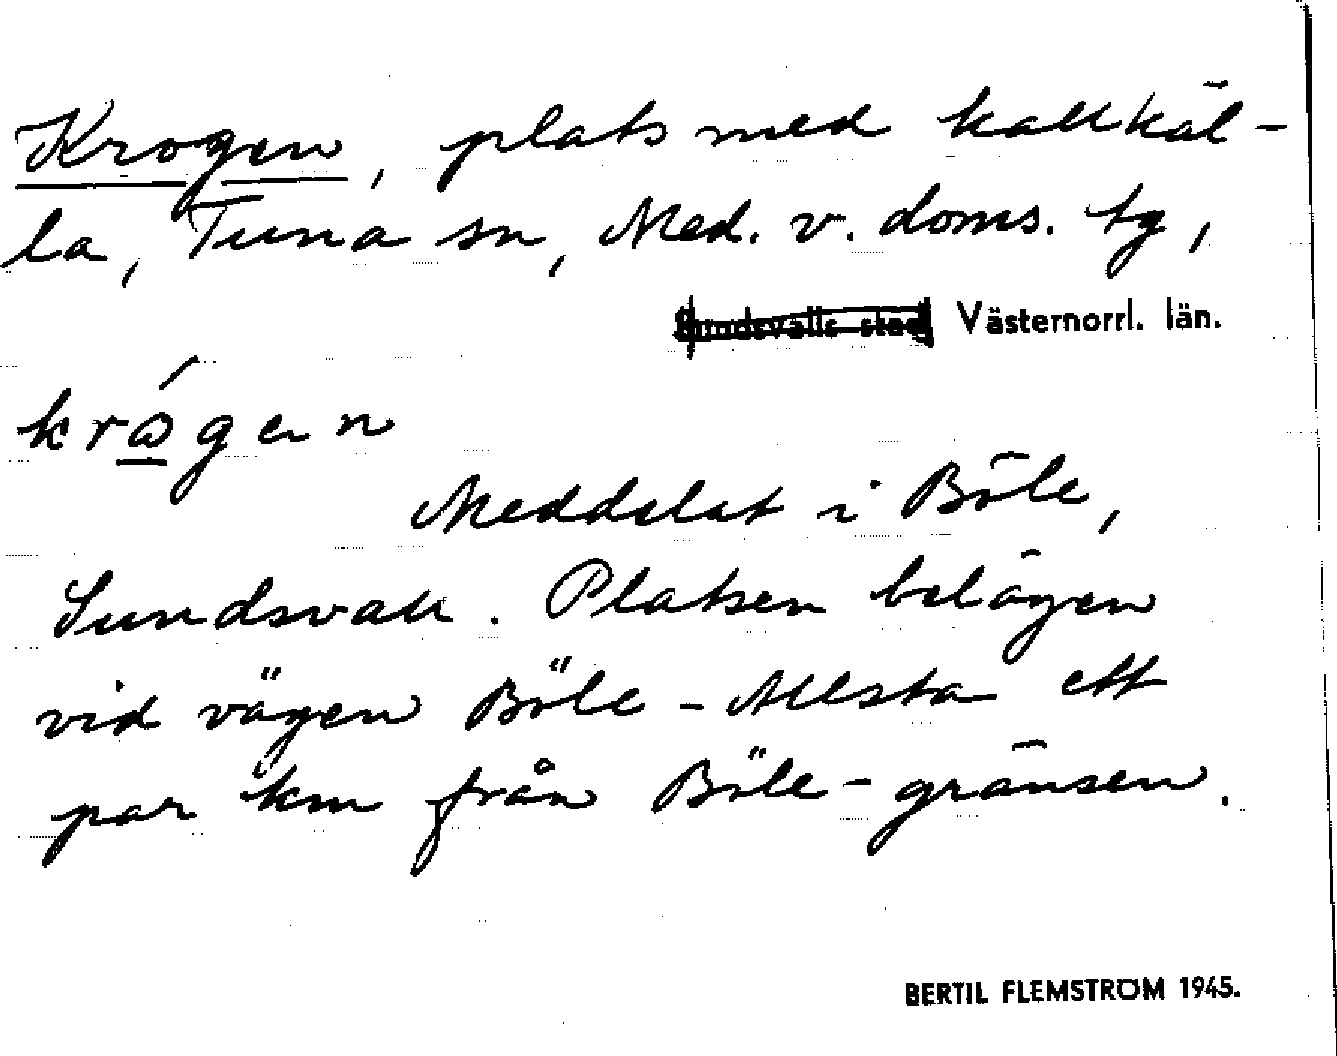 Krogen, plats med kallkäl-
la, Tuna sn, Med. v. doms. tg,
Sundsvalls stad Västernorrl. län.
krógen
Meddelat i Böle,
Sundsvall. Platsen belägen
vid vägen Böle - Allsta ett
par km från Böle-gränsen.
BERTIL FLEMSTRÖM 1945.